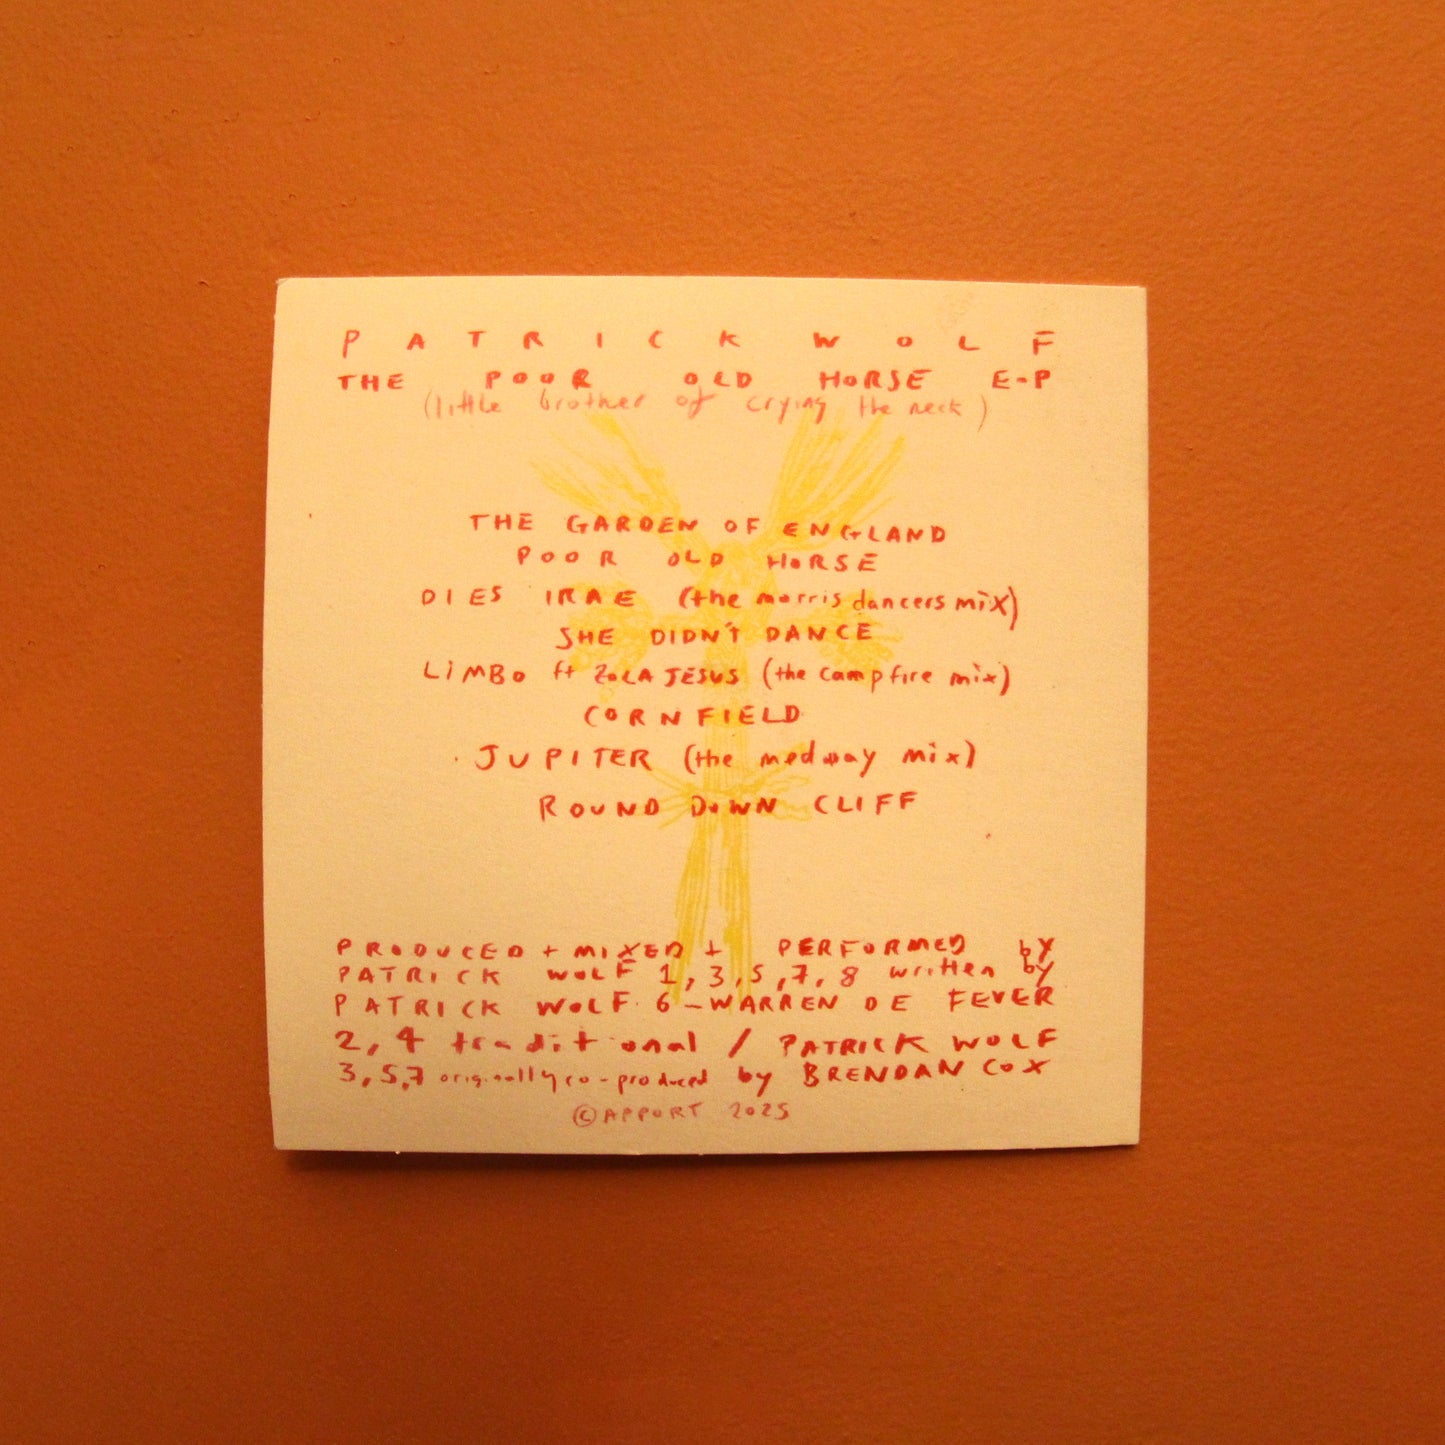 PATRICK WOLF
THE POOR OLD HORSE E-P
(little brother of crying the neck)
THE GARDEN OF ENGLAND
POOR OLD HORSE
DIES IRAE (the morris dancers mix)
SHE DIDN'T DANCE
LiMBo ft ZoLA JESUS (the campfire mix)
CORNFIELD
JUPITER (the medway mix)
ROUND DOWN CLIFF
PRODUCED + MIXED + PERFORMED by
PATRICK WOLF 1,3,5,7,8 written by
PATRICK WOLF. 6 - WARREN DE FEVER
2,4 traditional / PATRICK WOLF
3,5,7 originally co-produced by BRENDAN COX
© APPORT 2025